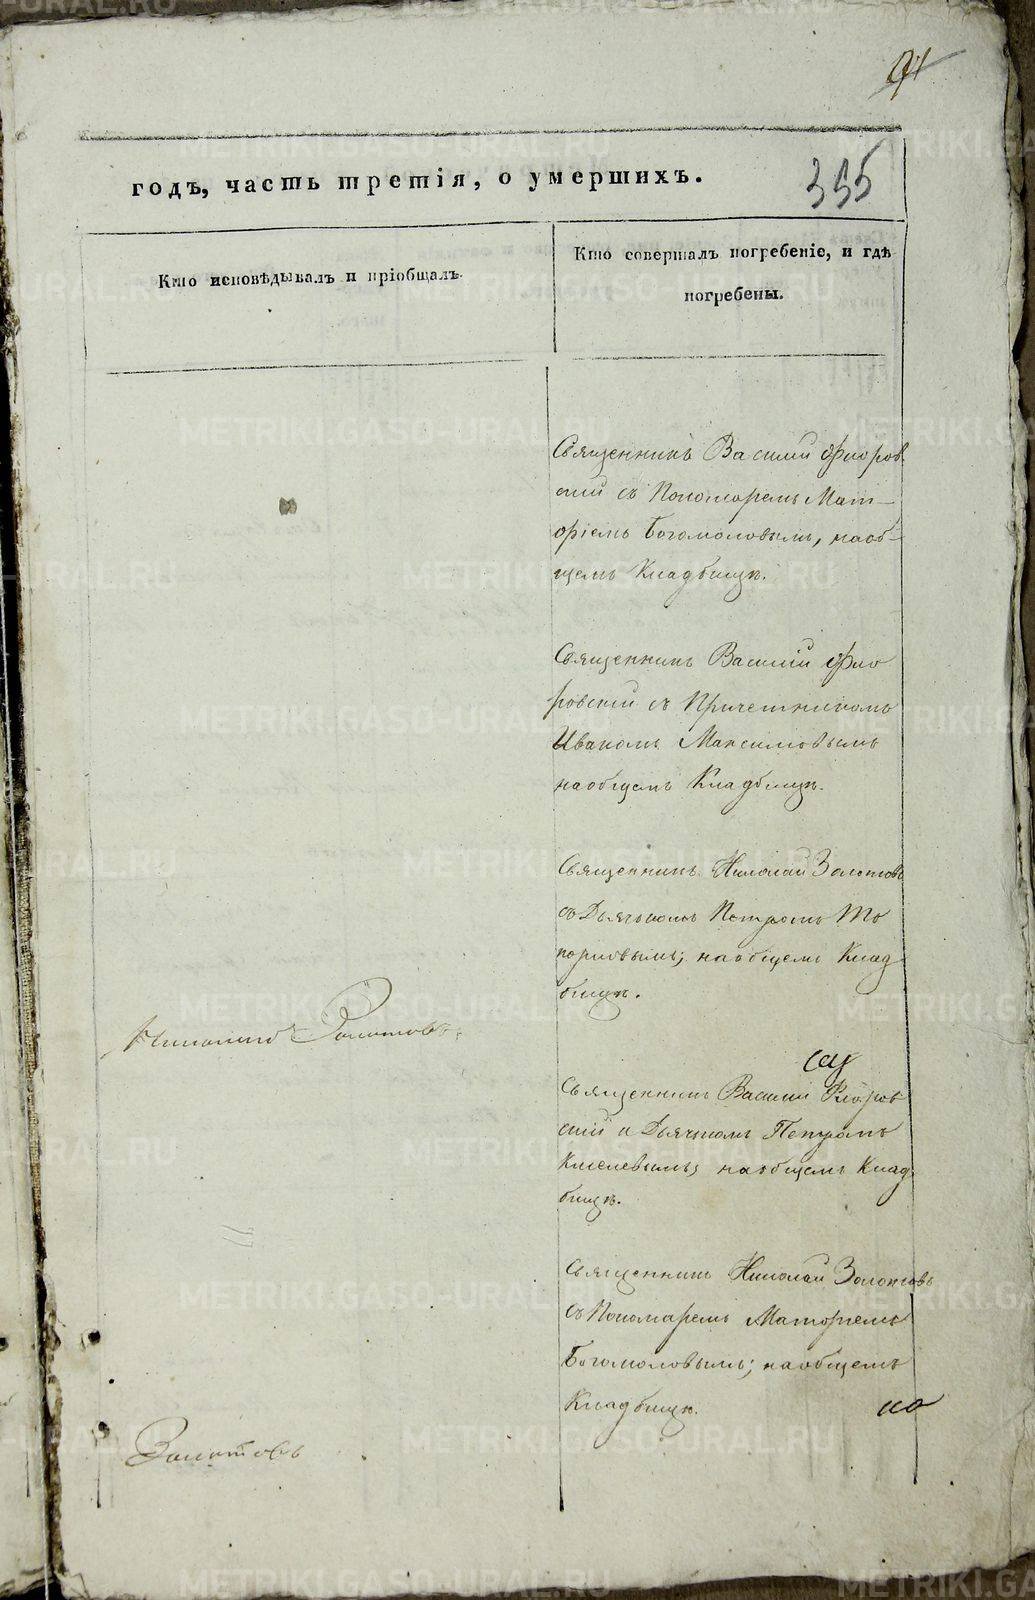 91
355
годъ, часть третія, о умершихъ.
Кто исповѣдывалъ и пріобщалъ.
Кто совершалъ погребеніе, и гдѣ
погребены.
Священникъ Василій Флоров
скій съ Пономаремъ Мат-
фіемъ Богомоловымъ, на об-
щемъ Кладбищѣ.
Священникъ Василій Фло
ровскій съ Причетникомъ
Иваномъ Максимовымъ
на общемъ Кладбищѣ.
Священникъ Николай Золотовъ
съ Дьячкомъ Петромъ То
порковымъ; на общемъ Клад
бищѣ.
Николай Золотовъ
Священникъ Василій Флоров
скій и Дьячкомъ Петромъ
Киселевымъ, на общемъ Клад
бищѣ.
Священникъ Николай Золотовъ
съ Пономаремъ Матфіемъ
Богомоловымъ; на общемъ
Кладбищѣ.
Золотовъ
METRIKI.GASO-URAL.RU